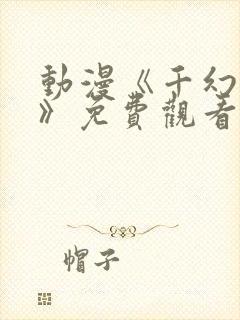 動漫《千幻
》免費觀看
帽子